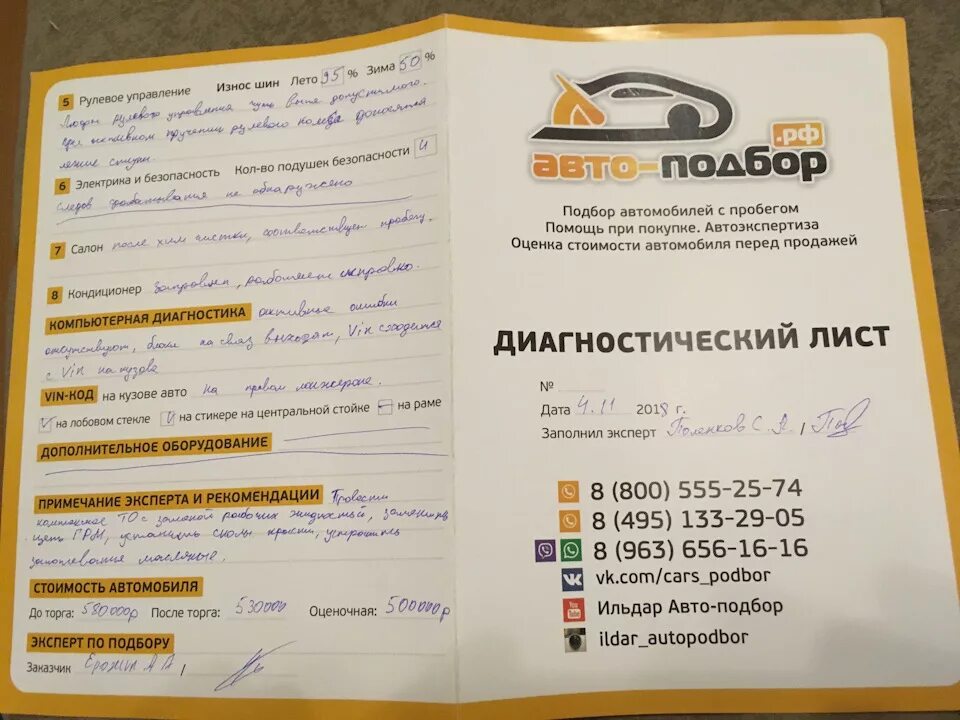 5 Рулевое управление Износ шин Лето 95 % Зима 50 %
Люфт рулевого управления чуть выше допустимого.
При активном кручении рулевого колеса доносятся
легкие стуки.
6 Электрика и безопасность Кол-во подушек безопасности 4
следов срабатывания не обнаружено
7 Салон после хим чистки, соответствует пробегу
8 Кондиционер заправлен, работает исправно.
КОМПЬЮТЕРНАЯ ДИАГНОСТИКА активные ошибки
отсутствуют, блоки на связь выходят, Vin сходится
с Vin на кузове
VIN-КОД на кузове авто на правом лонжероне.
на лобовом стекле на стикере на центральной стойке на раме
ДОПОЛНИТЕЛЬНОЕ ОБОРУДОВАНИЕ
ПРИМЕЧАНИЕ ЭКСПЕРТА И РЕКОМЕНДАЦИИ Провести
комплексное ТО с заменой рабочих жидкостей, заменить
цепь ГРМ, устранить сколы краски, устранить
запотевания масляные.
СТОИМОСТЬ АВТОМОБИЛЯ
До торга: 580000р После торга: 530000 Оценочная: 500000р
ЭКСПЕРТ ПО ПОДБОРУ
Заказчик А А /
авто-подбор.рф
Подбор автомобилей с пробегом
Помощь при покупке. Автоэкспертиза
Оценка стоимости автомобиля перед продажей
ДИАГНОСТИЧЕСКИЙ ЛИСТ
№
Дата 4.11 2018 г.
Заполнил эксперт Поленков С. А. /
8 (800) 555-25-74
8 (495) 133-29-05
8 (963) 656-16-16
vk.com/cars_podbor
Ильдар Авто-подбор
ildar_autopodbor